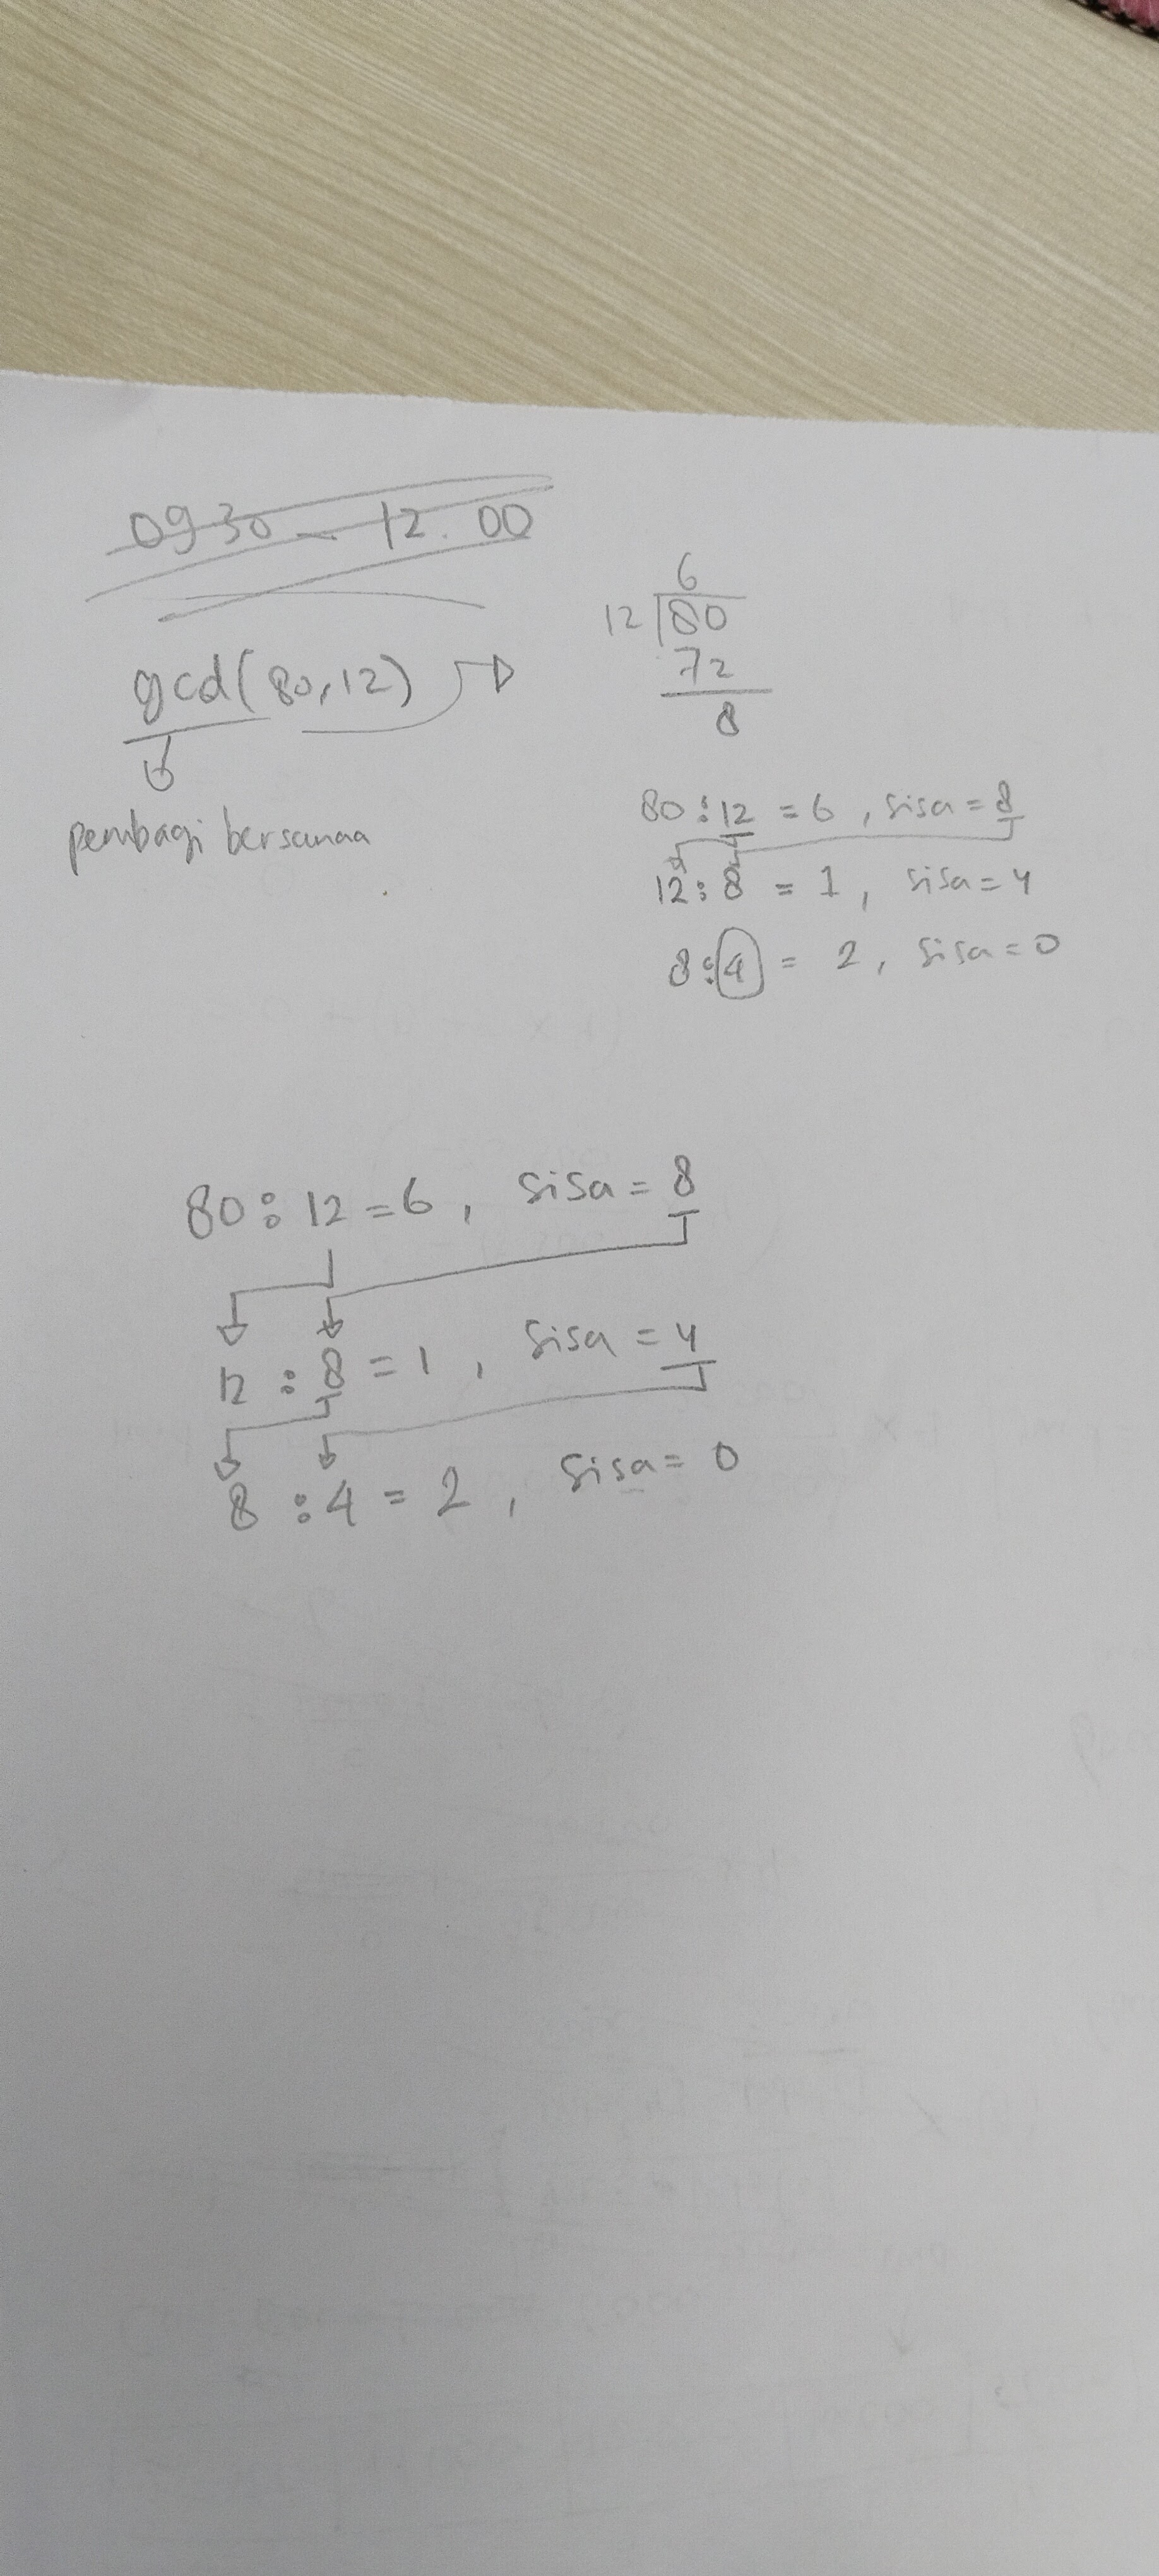 0930 - 12.00
gcd(80,12)
pembagi bersamaa
6
12 80
72
8
80 : 12 = 6 , sisa = 8
12 : 8 = 1 , sisa = 4
8 : 4 = 2 , sisa = 0
80 : 12 = 6 , sisa = 8
12 : 8 = 1 , sisa = 4
8 : 4 = 2 , sisa = 0